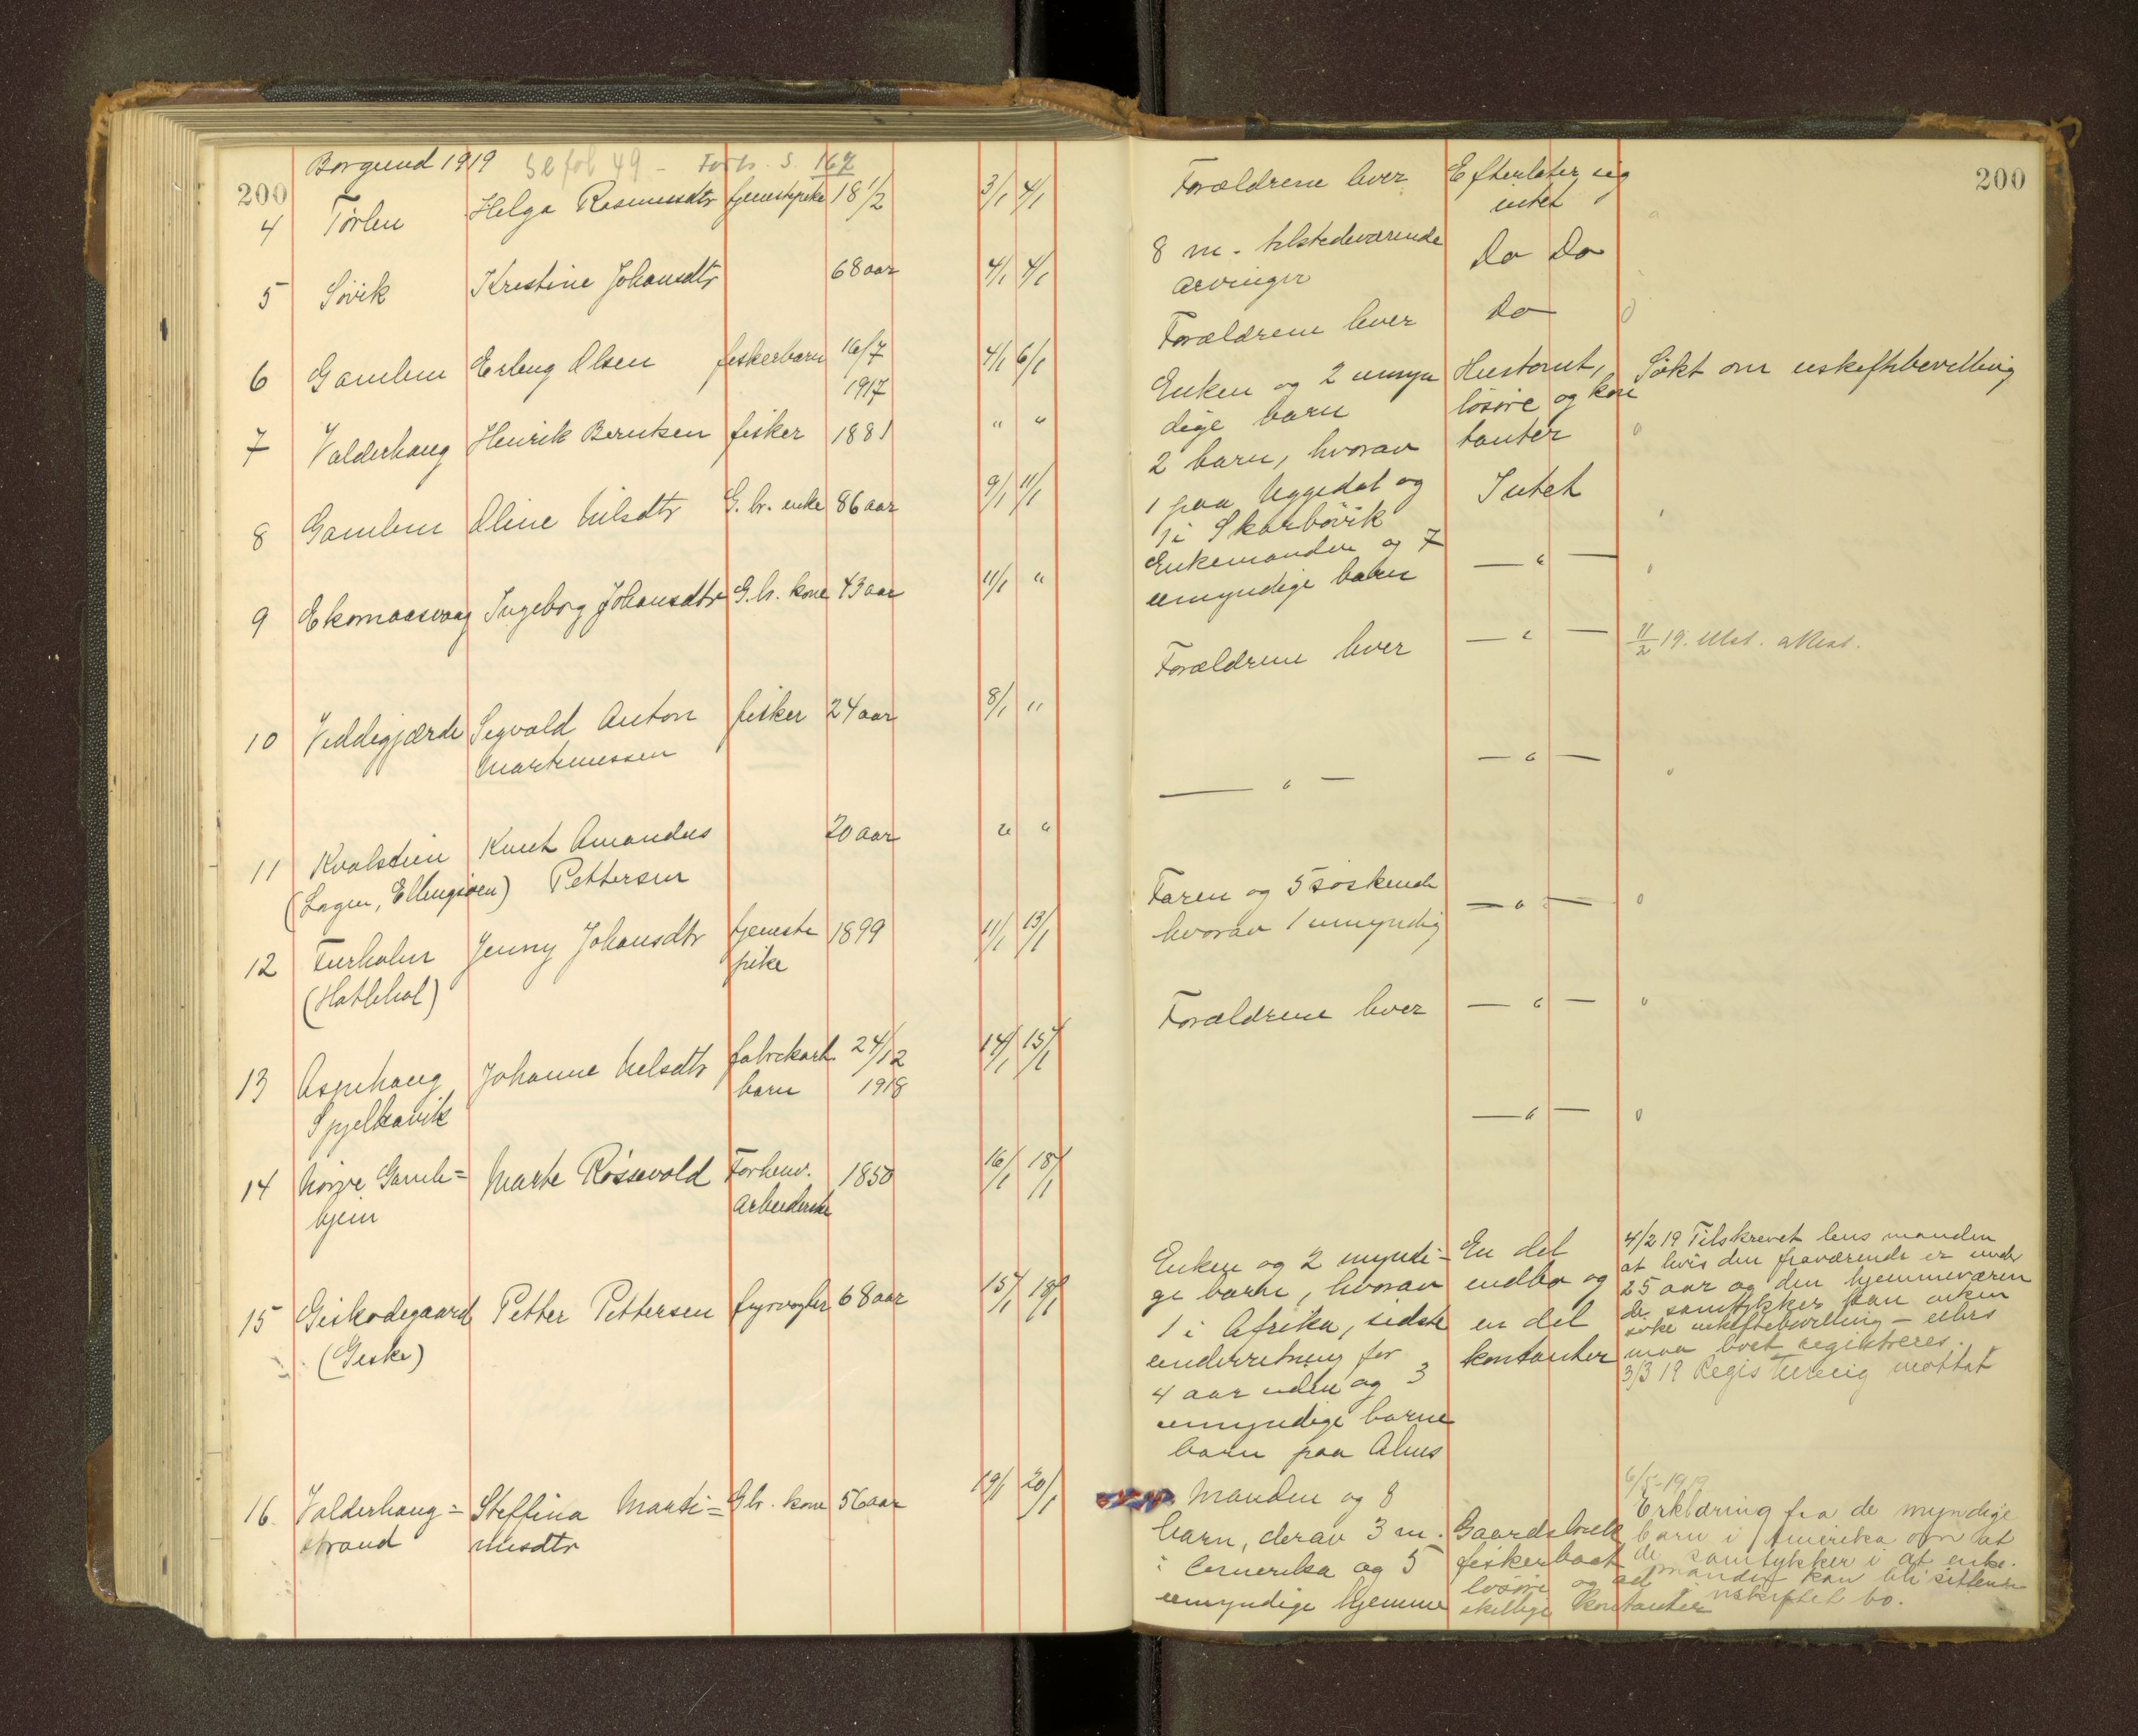 Borgund 1919
200
4 Tørlen Helga Rasmussdtr tjenestepike 18 1/2 3/1 4/1
5 Søvik Kristine Johansdtr 68 aar 4/1 4/1
6 Gamlem Erling Olsen fiskerbarn 16/7 4/1 6/1
1917
7 Valderhaug Henrik Berntsen fisker 1881 " "
8 Gamlem Oline Nilsdtr G. br. enke 86 aar 9/1 11/1
9 Ekornaasvaag Ingeborg Johansdtr G. br. kone 43 aar 11/1 "
10 Veddegjærde Sigvald Anton fisker 24 aar 8/1 "
Martinussen
11 Kvalstein Knut Amandus 20 aar " "
(Langen, Ellingsøen) Pettersen
12 Furholm Jenny Johansdtr tjeneste 1899 11/1 13/1
(Hatlehol) pike
13 Aspehaug Johanne Nilsdtr fabrikarb. 24/12 14/1 15/1
Spjelkavik barn 1918
14 Nørve Gamle= Marte Røssevold Forhenv. 1850 16/1 18/1
hjem Arbeiderske
15 Giskeødegaard Petter Pettersen fyrvogter 68 aar 15/1 18/1
(Giske)
16. Valderhaug= Steffina Marti= Gbr. kone 56 aar 19/1 20/1
strand nusdtr
200
Forældrene lever Efterlater sig
intet
8 m. tilstedeværende Do Do
arvinger
Forældrene lever Do
Enken og 2 umyn Hustomt, Søkt om uskiftebevilling
dige barn løsøre og kon
2 barn, hvorav tanter
1 paa Uggedal og Intet
1 i Skarbøvik
Enkemanden og 7 — " —
umyndige barn
Forældrene lever — " — 11/2 19. Utst. attest.
— " — — " —
Faren og 5 søskende — " —
hvorav 1 umyndig
Forældrene lever — " —
— " —
Enken og 2 myndi- En del 4/2 19 Tilskrevet lensmanden
ge barn, hvorav indbo og at hvis den fraværende er under
1 i Afrika, sidste en del 25 aar og den hjemmeværen
underretning for kontanter de samtykker kan enken
4 aar siden og 3 søke uskiftebevilling – ellers
umyndige barne maa boet registreres.
barn paa Alnes 3/3 19 Registrering mottat
Manden og 8 6/5-1919
barn, derav 3 m. Gaardsbruk Erklæring fra de myndige
i Amerika og 5 fiskerbaat barn i Amerika om at
umyndige hjemme løsøre og ad de samtykker i at enke-
skillige kontanter manden kan bli sittende
i uskiftet bo.